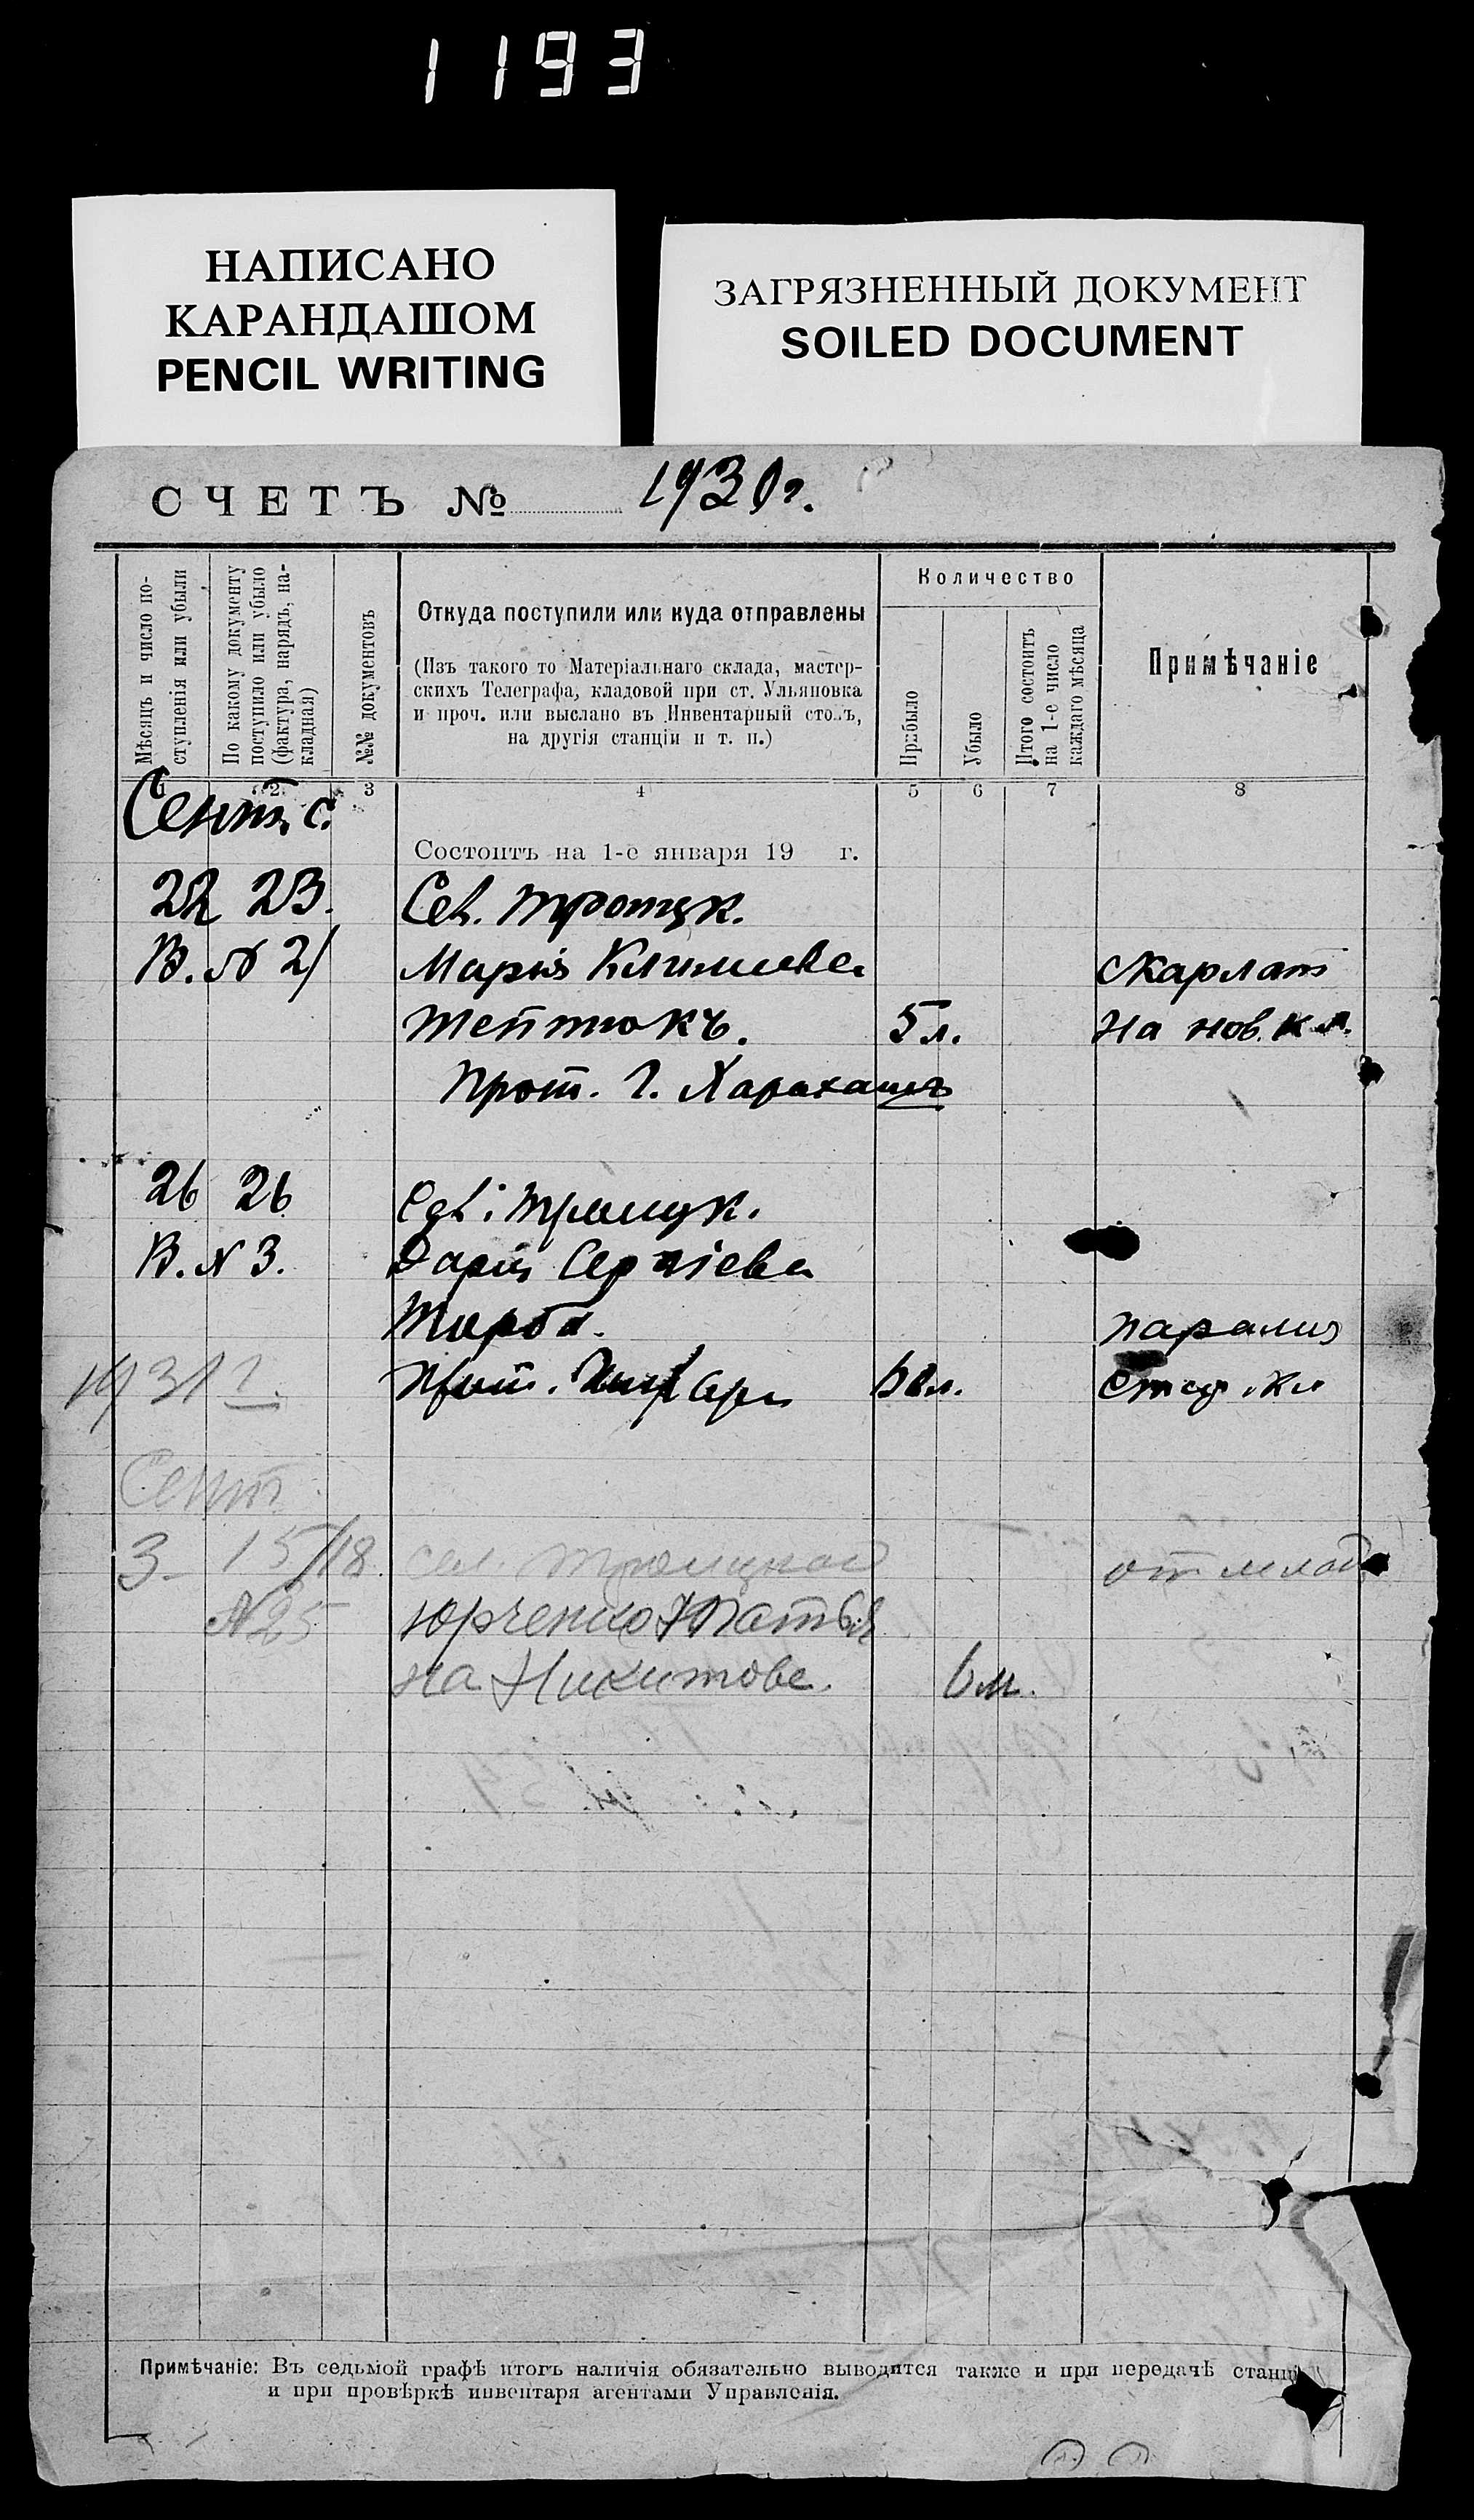 1193
НАПИСАНО
КАРАНДАШОМ
PENCIL WRITING
ЗАГРЯЗНЕННЫЙ ДОКУМЕНТ
SOILED DOCUMENT
СЧЕТЪ № 1930г.
Мѣсяцъ и число по-
ступленія или убыли
По какому документу
поступило или убыло
(фактура, нарядъ, на-
кладная)
№№ документовъ
Откуда поступили или куда отправлены
(Изъ такого то Матеріальнаго склада, мастер-
скихъ Телеграфа, кладовой при ст. Ульяновка
и проч. или выслано въ Инвентарный столъ,
на другія станціи и т. п.)
Количество
Прибыло
Убыло
Итого состоитъ
на 1-е число
каждаго мѣсяца
Примѣчаніе
1 2 3 4 5 6 7 8
Сент. с.
Состоитъ на 1-е января 19 г.
22 23. Сел. Троицк.
В. № 21 Марія Климиева Скарлат
5 л. на нов. кл.
Прот. Г. Харахашъ
26 26 Троицк.
В. № 3. Дарія Сергіева
паралич
1931 г. Прот.
Сент.
3 15/18. сел. Троицкой от млад.
№25 Юрченко
на Никитове. 6 м.
Примѣчаніе: Въ седьмой графѣ итогъ наличія обязательно выводится также и при передачѣ станц
и при провѣркѣ инвентаря агентами Управленія.